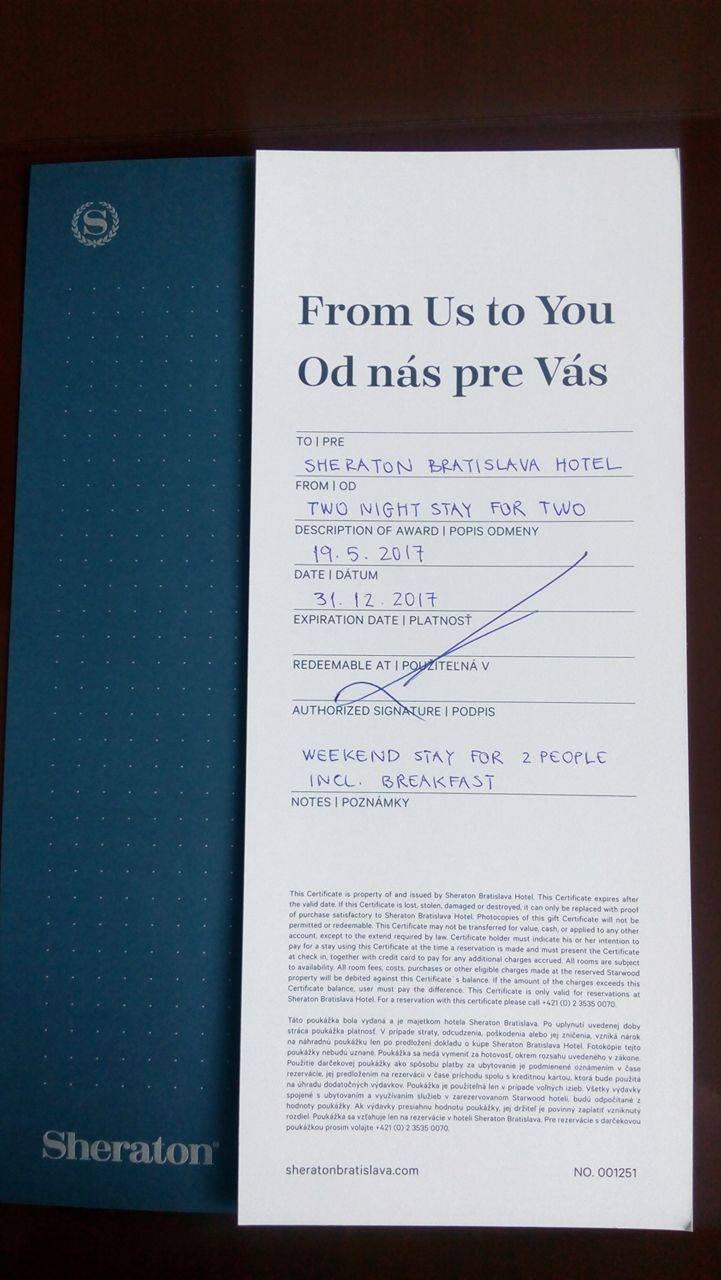 S
From Us to You
Od nás pre Vás
TO | PRE
SHERATON BRATISLAVA HOTEL
FROM | OD
TWO NIGHT STAY FOR TWO
DESCRIPTION OF AWARD | POPIS ODMENY
19. 5. 2017
DATE | DÁTUM
31. 12. 2017
EXPIRATION DATE | PLATNOSŤ
REDEEMABLE AT | POUŽITEĽNÁ V
AUTHORIZED SIGNATURE | PODPIS
WEEKEND STAY FOR 2 PEOPLE
INCL. BREAKFAST
NOTES | POZNÁMKY
This Certificate is property of and issued by Sheraton Bratislava Hotel. This Certificate expires after
the valid date. If this Certificate is lost, stolen, damaged or destroyed, it can only be replaced with proof
of purchase satisfactory to Sheraton Bratislava Hotel. Photocopies of this gift Certificate will not be
permitted or redeemable. This Certificate may not be transferred for value, cash, or applied to any other
account, except to the extend required by law. Certificate holder must indicate his or her intention to
pay for a stay using this Certificate at the time a reservation is made and must present the Certificate
at check in, together with credit card to pay for any additional charges accrued. All rooms are subject
to availability. All room fees, costs, purchases or other eligible charges made at the reserved Starwood
property will be debited against this Certificate`s balance. If the amount of the charges exceeds this
Certificate balance, user must pay the difference. This Certificate is only valid for reservations at
Sheraton Bratislava Hotel. For a reservation with this certificate please call +421 (0) 2 3535 0070.
Táto poukážka bola vydaná a je majetkom hotela Sheraton Bratislava. Po uplynutí uvedenej doby
stráca poukážka platnosť. V prípade straty, odcudzenia, poškodenia alebo jej zničenia, vzniká nárok
na náhradnú poukážku len po predložení dokladu o kúpe Sheraton Bratislava Hotel. Fotokópie tejto
poukážky nebudú uznané. Poukážka sa nedá vymeniť za hotovosť, okrem rozsahu uvedeného v zákone.
Použitie darčekovej poukážky ako spôsobu platby za ubytovanie je podmienené oznámením v čase
rezervácie, jej predložením na rezervácii v čase príchodu spolu s kreditnou kartou, ktorá bude použitá
na úhradu dodatočných výdavkov. Poukážka je použiteľná len v prípade voľných izieb. Všetky výdavky
spojené s ubytovaním a využívaním služieb v zarezervovanom Starwood hoteli, budú odpočítané z
hodnoty poukážky. Ak výdavky presiahnu hodnotu poukážky, jej držiteľ je povinný zaplatiť vzniknutý
rozdiel. Poukážka sa vzťahuje len na rezervácie v hoteli Sheraton Bratislava. Pre rezervácie s darčekovou
poukážkou prosím volajte +421 (0) 2 3535 0070.
Sheraton®
sheratonbratislava.com
NO. 001251